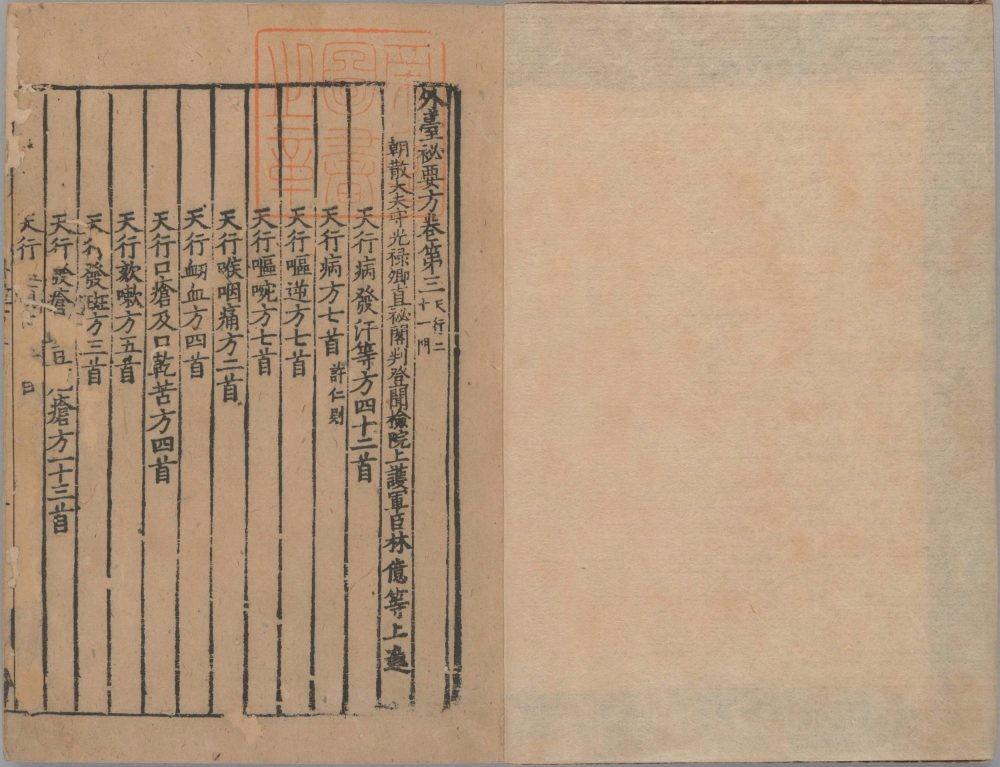 外臺祕要方卷第三天行二十一門
朝散大夫守光祿卿直祕閣判登聞檢院上護軍臣林億等上進
天行病發汗等方四十二首
天行病方七首許仁則
天行嘔逆方七首
天行嘔啘方七首
天行喉咽痛方二首
天行衂血方四首
天行口瘡及口乾苦方四首
天行欬嗽方五首
天行發斑方三首
天行發瘡豆瘡方一十三首
天行